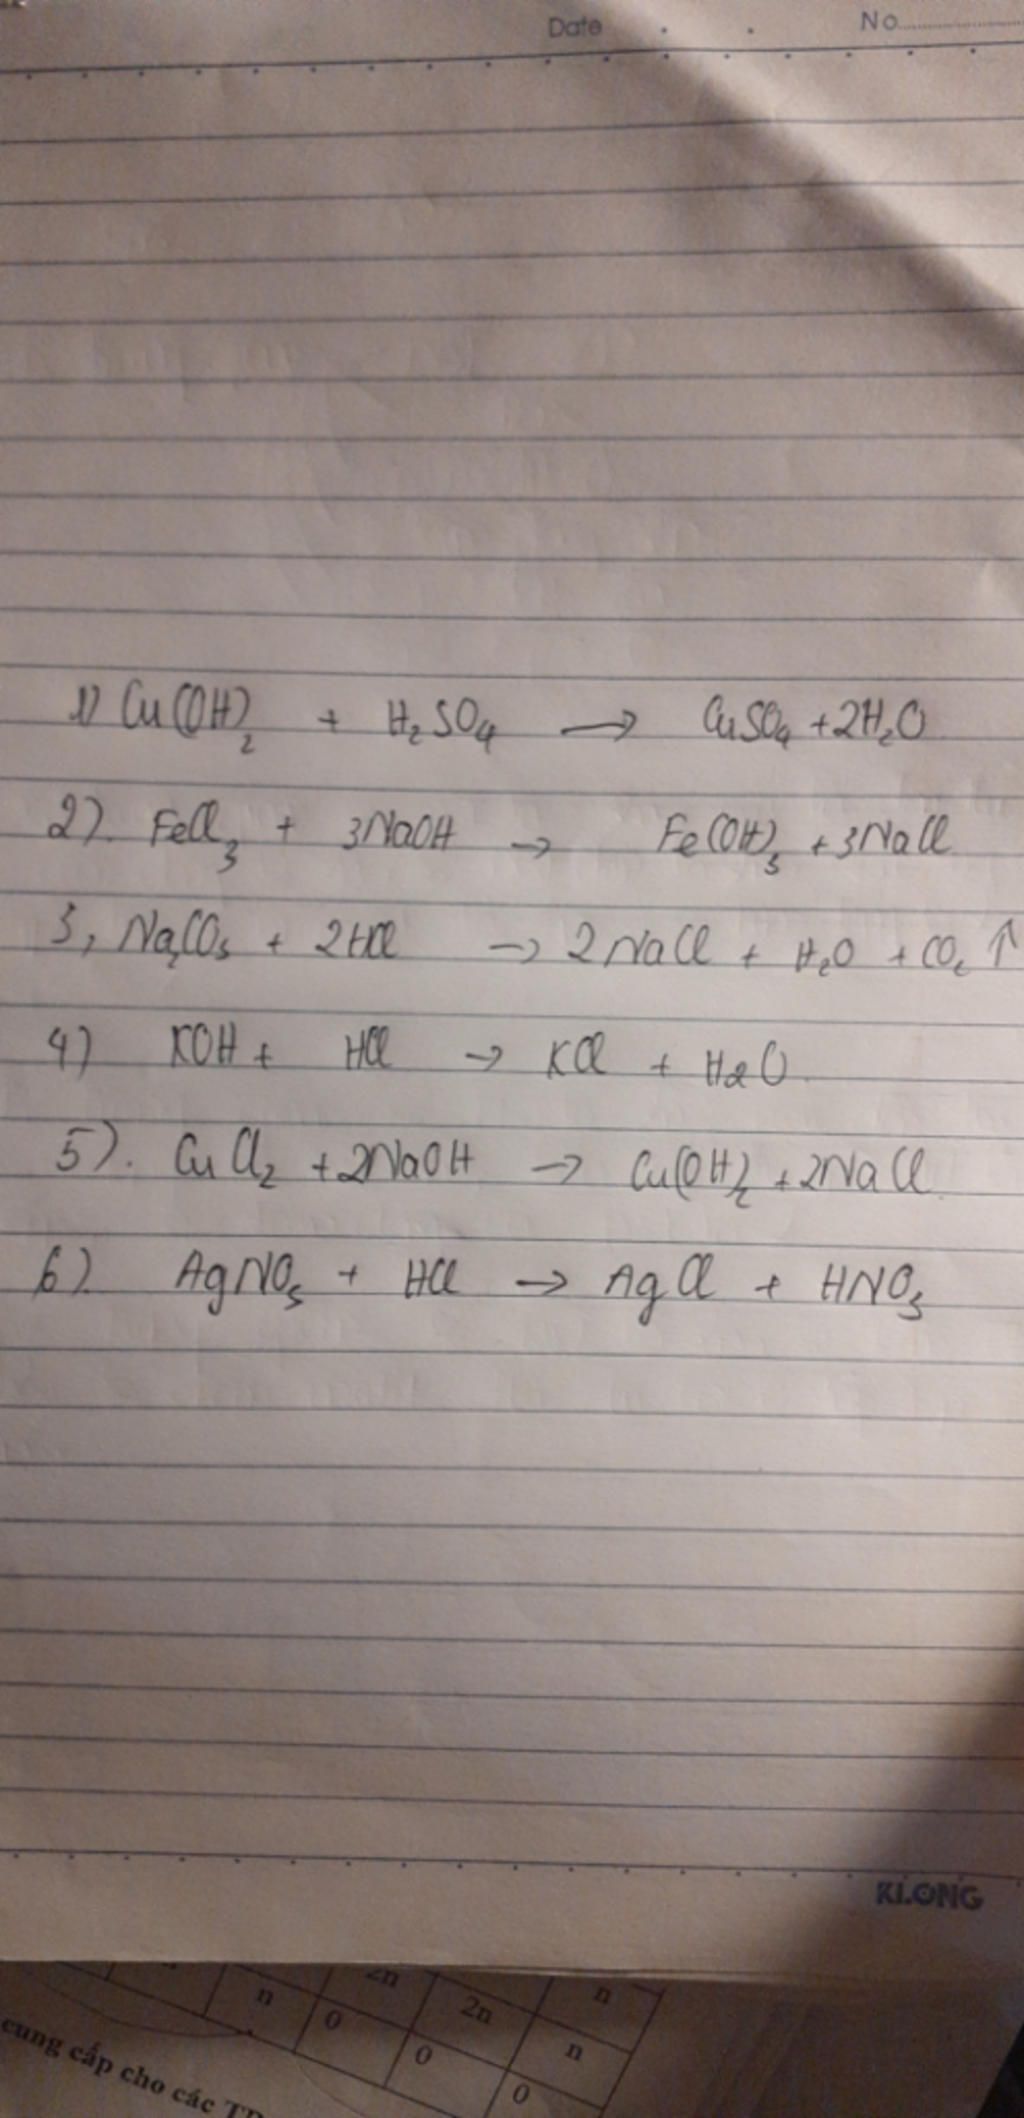 Date . . No
1) Cu(OH)₂ + H₂SO₄ → CuSO₄ + 2H₂O
2). FeCl₃ + 3NaOH → Fe(OH)₃ + 3NaCl
3, Na₂CO₃ + 2HCl → 2NaCl + H₂O + CO₂ ↑
4) KOH + HCl → KCl + H₂O
5). CuCl₂ + 2NaOH → Cu(OH)₂ + 2NaCl
6) AgNO₃ + HCl → AgCl + HNO₃
KLONG
2n n
n 2n
0 n
0
0
cung cấp cho các